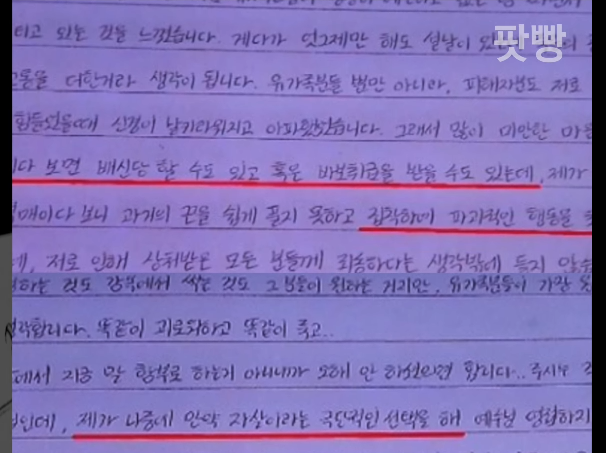 팟빵
티고 있는 것을 느꼈습니다. 게다가 엊그제만 해도 설날이 있
고통을 더한거라 생각이 됩니다. 유가족분들 뿐만 아니라, 피해자분도 저로
힘들었을때 신경이 날카라워지고 아파왔었습니다. 그래서 많이 미안한 마음
다 보면 배신당 할 수도 있고 혹은 바보취급을 받을 수도 있는데, 제가
매이다 보니 과거의 끈을 쉽게 풀지 못하고 집착하며 파괴적인 행동을
데, 저로 인해 상처받은 모든 분들께 죄송하다는 생각밖에 들지 않
하는 것도 감옥에서 썩는 것도 그분들이 원하는 거지만, 유가족분들이 가장
생각합니다. 똑같이 괴로워하고 똑같이 죽고..
에서 지금 말 함부로 하는게 아니니까 오해 안 하셨으면 합니다.. 주시는
인데, 제가 나중에 만약 자살이라는 극단적인 선택을 해 예수님 영접하지